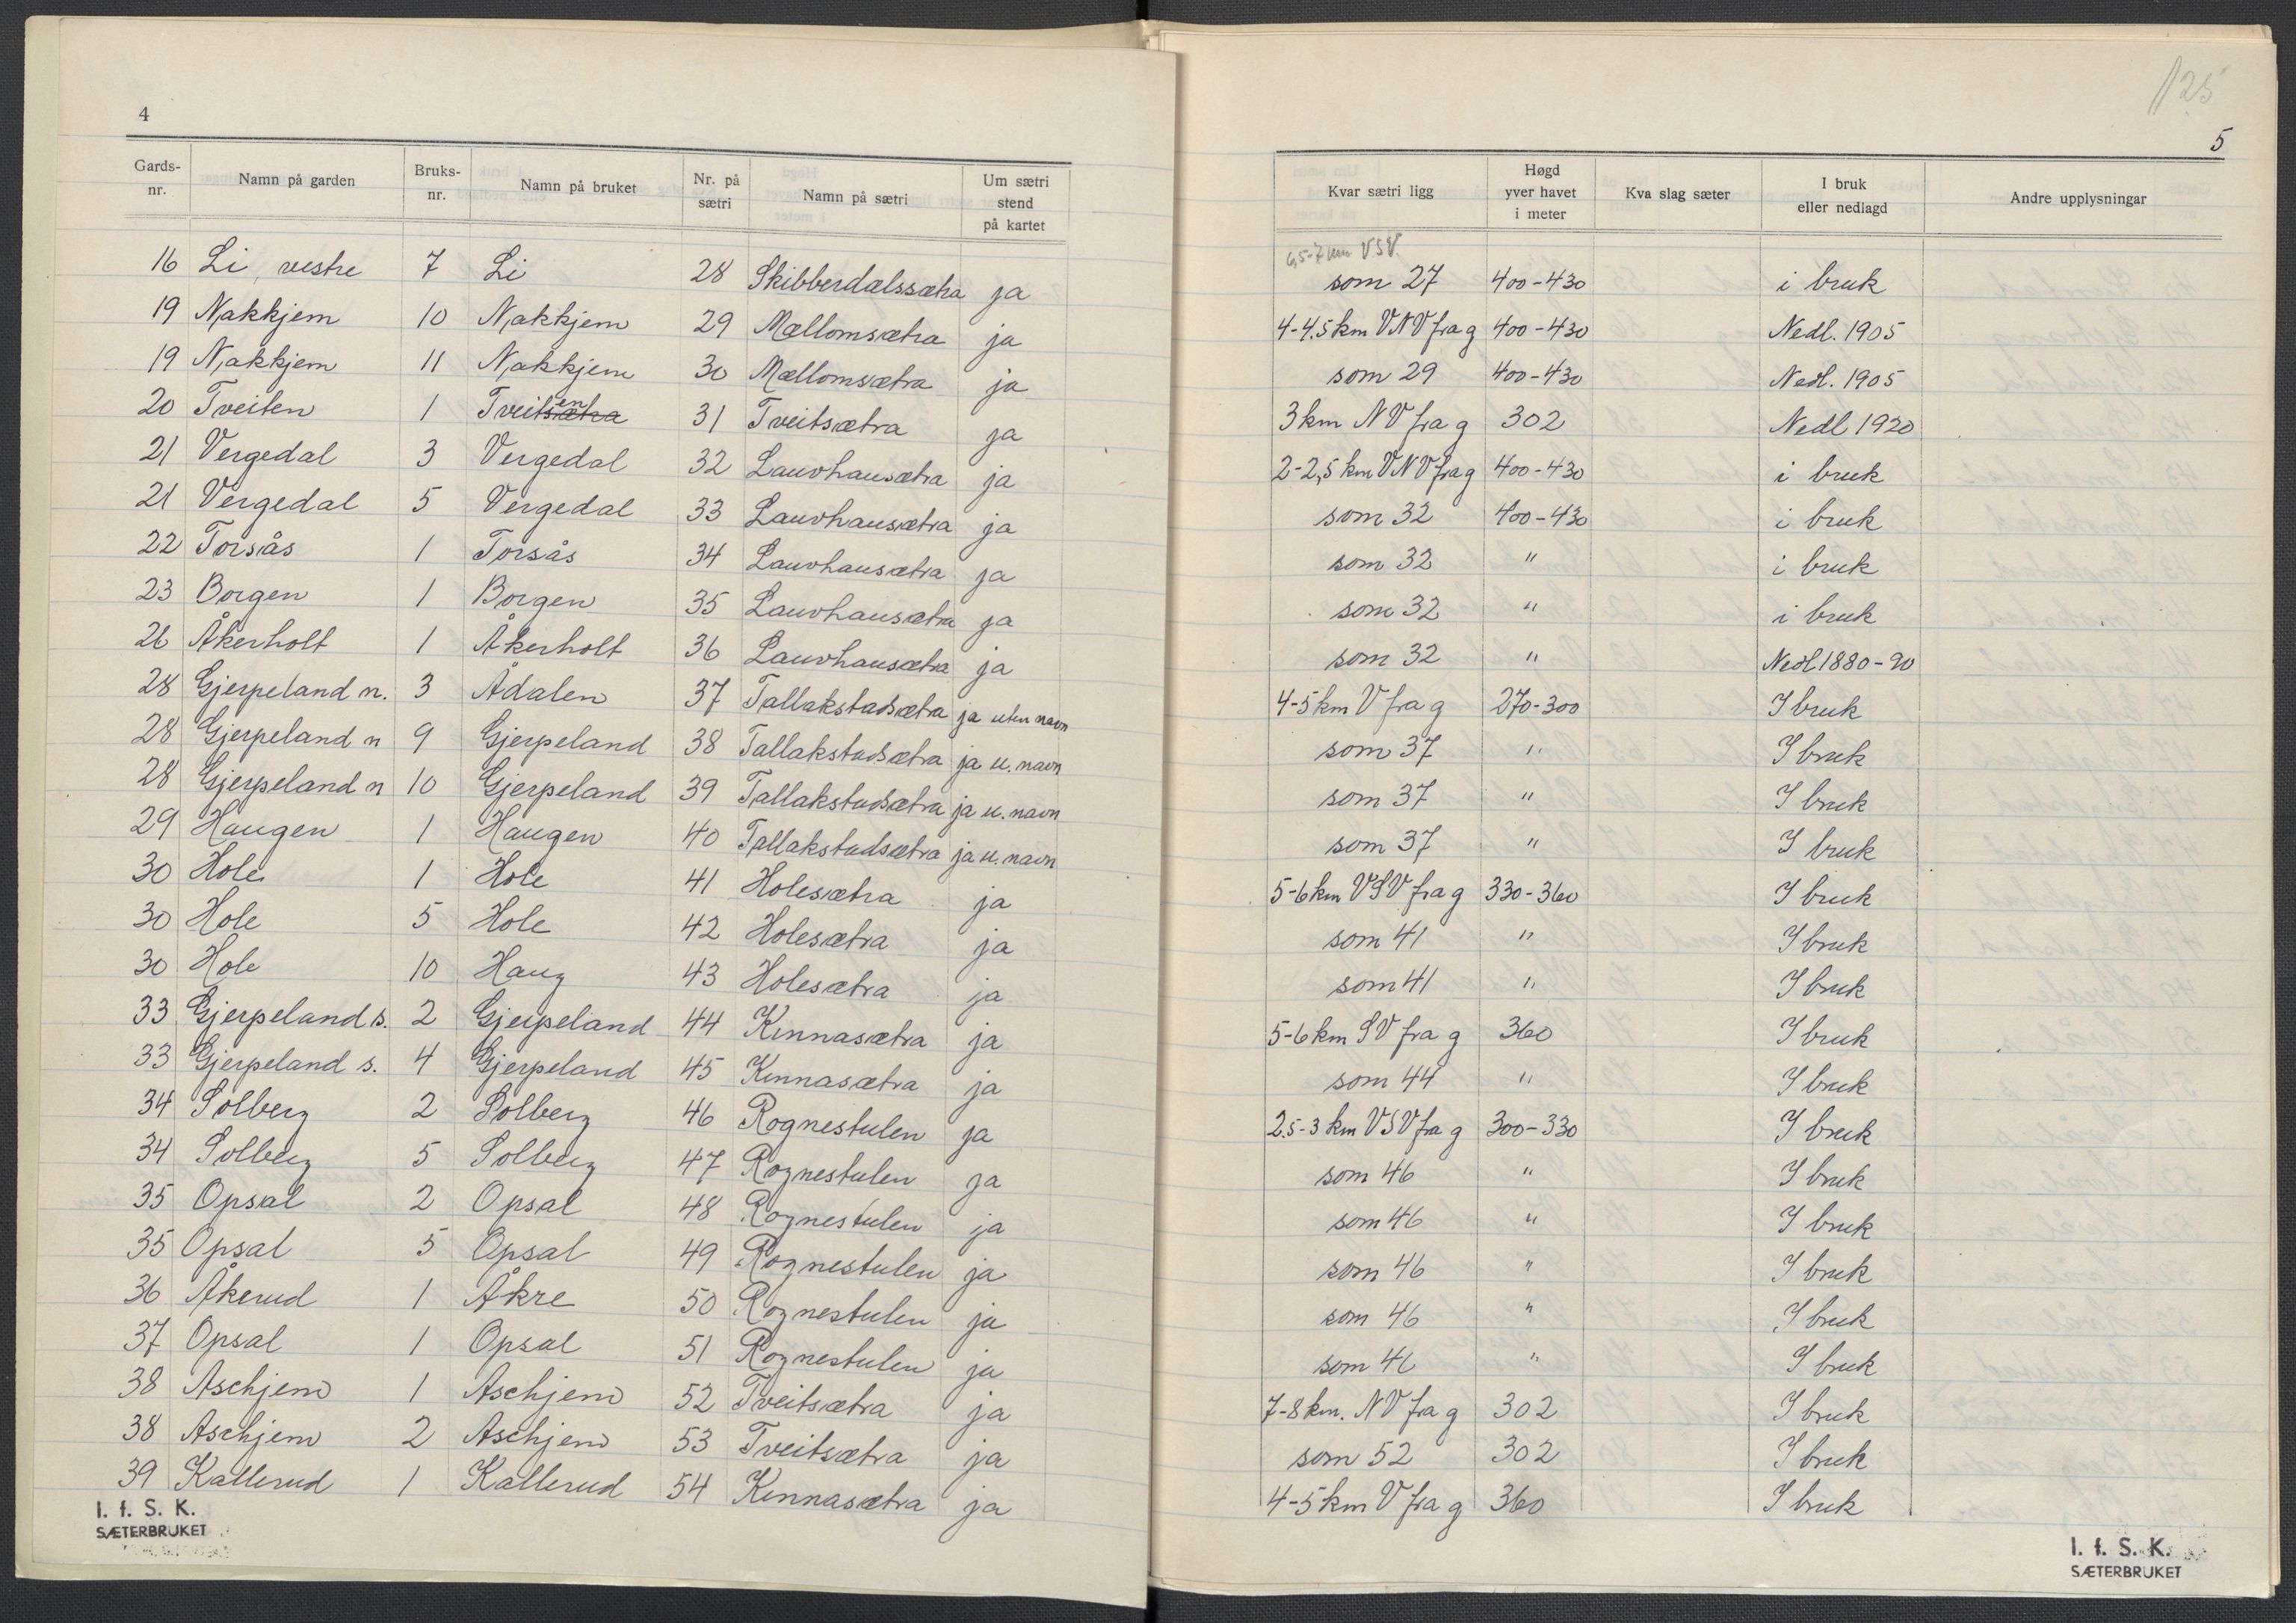 4
Gards-nr. | Namn på garden | Bruks-nr. | Namn på bruket | Nr. på sætri | Namn på sætri | Um sætri stend på kartet
16 | Li, vestre | 7 | Li | 28 | Skibberdalssætra | ja
19 | Nakkjem | 10 | Nakkjem | 29 | Mellomsætra | ja
19 | Nakkjem | 11 | Nakkjem | 30 | Mellomsætra | ja
20 | Tveiten | 1 | Tveitsætra en | 31 | Tveitsætra | ja
21 | Vergedal | 3 | Vergedal | 32 | Lauvhausætra | ja
21 | Vergedal | 5 | Vergedal | 33 | Lauvhausætra | ja
22 | Torsås | 1 | Torsås | 34 | Lauvhausætra | ja
23 | Borgen | 1 | Borgen | 35 | Lauvhausætra | ja
26 | Åkerholt | 1 | Åkerholt | 36 | Lauvhausætra | ja
28 | Gjerpeland n. | 3 | Ådalen | 37 | Tallakstadsætra | ja uten navn
28 | Gjerpeland n | 9 | Gjerpeland | 38 | Tallakstadsætra | ja u. navn
28 | Gjerpeland n | 10 | Gjerpeland | 39 | Tallakstadsætra | ja u. navn
29 | Haugen | 1 | Haugen | 40 | Tallakstadsætra | ja u. navn
30 | Hole | 1 | Hole | 41 | Holesætra | ja
30 | Hole | 5 | Hole | 42 | Holesætra | ja
30 | Hole | 10 | Haug | 43 | Holesætra | ja
33 | Gjerpeland s. | 2 | Gjerpeland | 44 | Kinnasætra | ja
33 | Gjerpeland s. | 4 | Gjerpeland | 45 | Kinnasætra | ja
34 | Solberg | 2 | Solberg | 46 | Rognestulen | ja
34 | Solberg | 5 | Solberg | 47 | Rognestulen | ja
35 | Opsal | 2 | Opsal | 48 | Rognestulen | ja
35 | Opsal | 5 | Opsal | 49 | Rognestulen | ja
36 | Åkerud | 1 | Åkre | 50 | Rognestulen | ja
37 | Opsal | 1 | Opsal | 51 | Rognestulen | ja
38 | Aschjem | 1 | Aschjem | 52 | Tveitsætra | ja
38 | Aschjem | 2 | Aschjem | 53 | Tveitsætra | ja
39 | Kallerud | 1 | Kallerud | 54 | Kinnasætra | ja
I. f. S. K.
SÆTERBRUKET
125
5
Kvar sætri ligg | Høgd yver havet i meter | Kva slag sæter | I bruk eller nedlagd | Andre upplysningar
6,5-7 km VSV.
som 27 | 400-430 | i bruk
4-4.5 km VNV fra g | 400-430 | Nedl. 1905
som 29 | 400-430 | Nedl. 1905
3 km NV fra g | 302 | Nedl 1920
2-2,5 km VNV fra g | 400-430 | i bruk
som 32 | 400-430 | i bruk
som 32 | " | i bruk
som 32 | " | i bruk
som 32 | " | Nedl 1880-90
4-5 km V fra g | 270-300 | I bruk
som 37 | " | I bruk
som 37 | " | I bruk
som 37 | " | I bruk
5-6 km VSV fra g | 330-360 | I bruk
som 41 | " | I bruk
som 41 | " | I bruk
5-6 km SV fra g | 360 | I bruk
som 44 | " | I bruk
2.5-3 km VSV fra g | 300-330 | I bruk
som 46 | " | I bruk
som 46 | " | I bruk
som 46 | " | I bruk
som 46 | " | I bruk
som 46 | " | I bruk
7-8 km. NV fra g | 302 | I bruk
som 52 | 302 | I bruk
4-5 km V fra g | 360 | I bruk
I. f. S. K.
SÆTERBRUKET